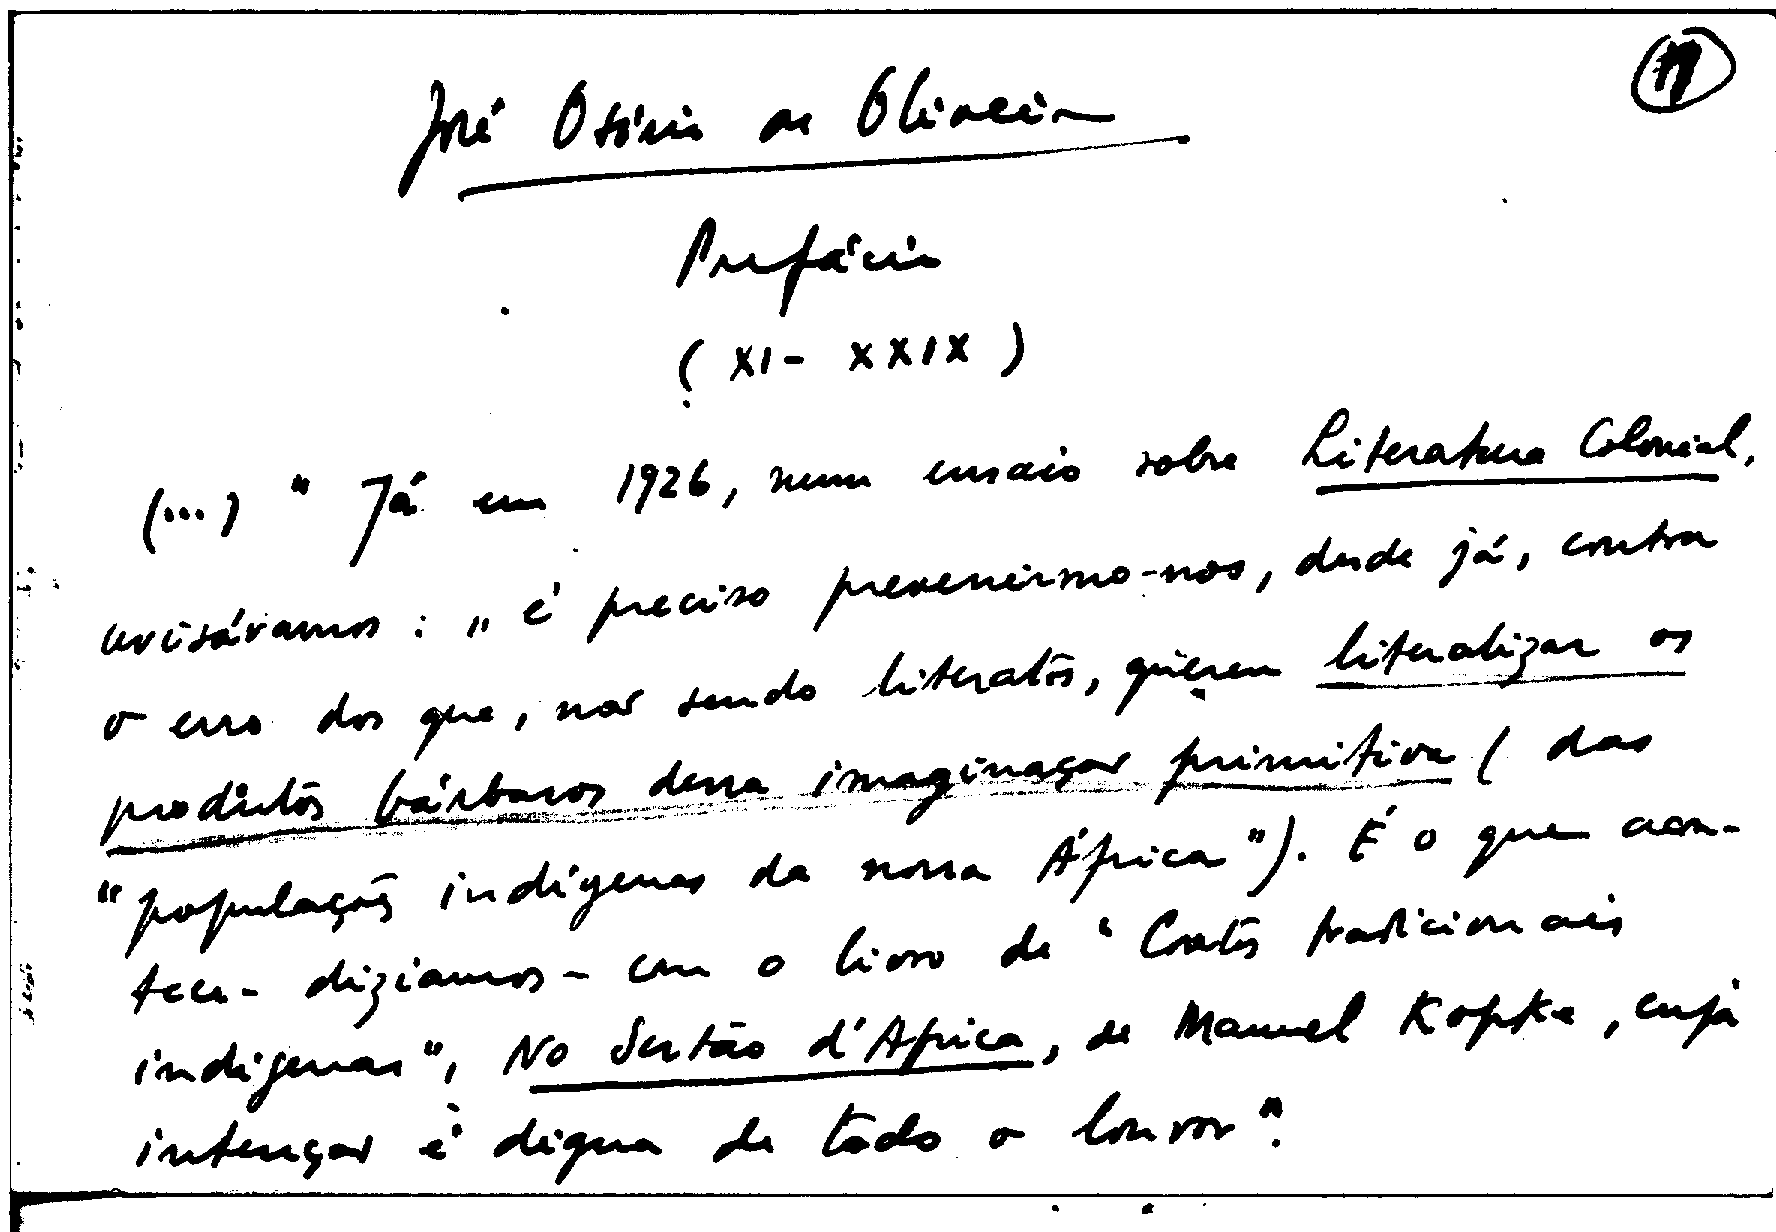 José Osório de Oliveira
Prefácio
(XI - XXIX)
(...) " Já em 1926, num ensaio sobre Literatura Colonial,
avisáramos: „ é preciso prevenirmo-nos, desde já, contra
o erro dos que, não sendo literatos, querem literalizar os
produtos bárbaros dessa imaginação primitiva ( das
"populações indígenas da nossa África"). É o que acon-
tece - dizíamos - com o livro de "Contos tradicionais
indígenas", No Sertão d'África, de Manuel Kopke, cuja
intenção é digna de todo o louvor".